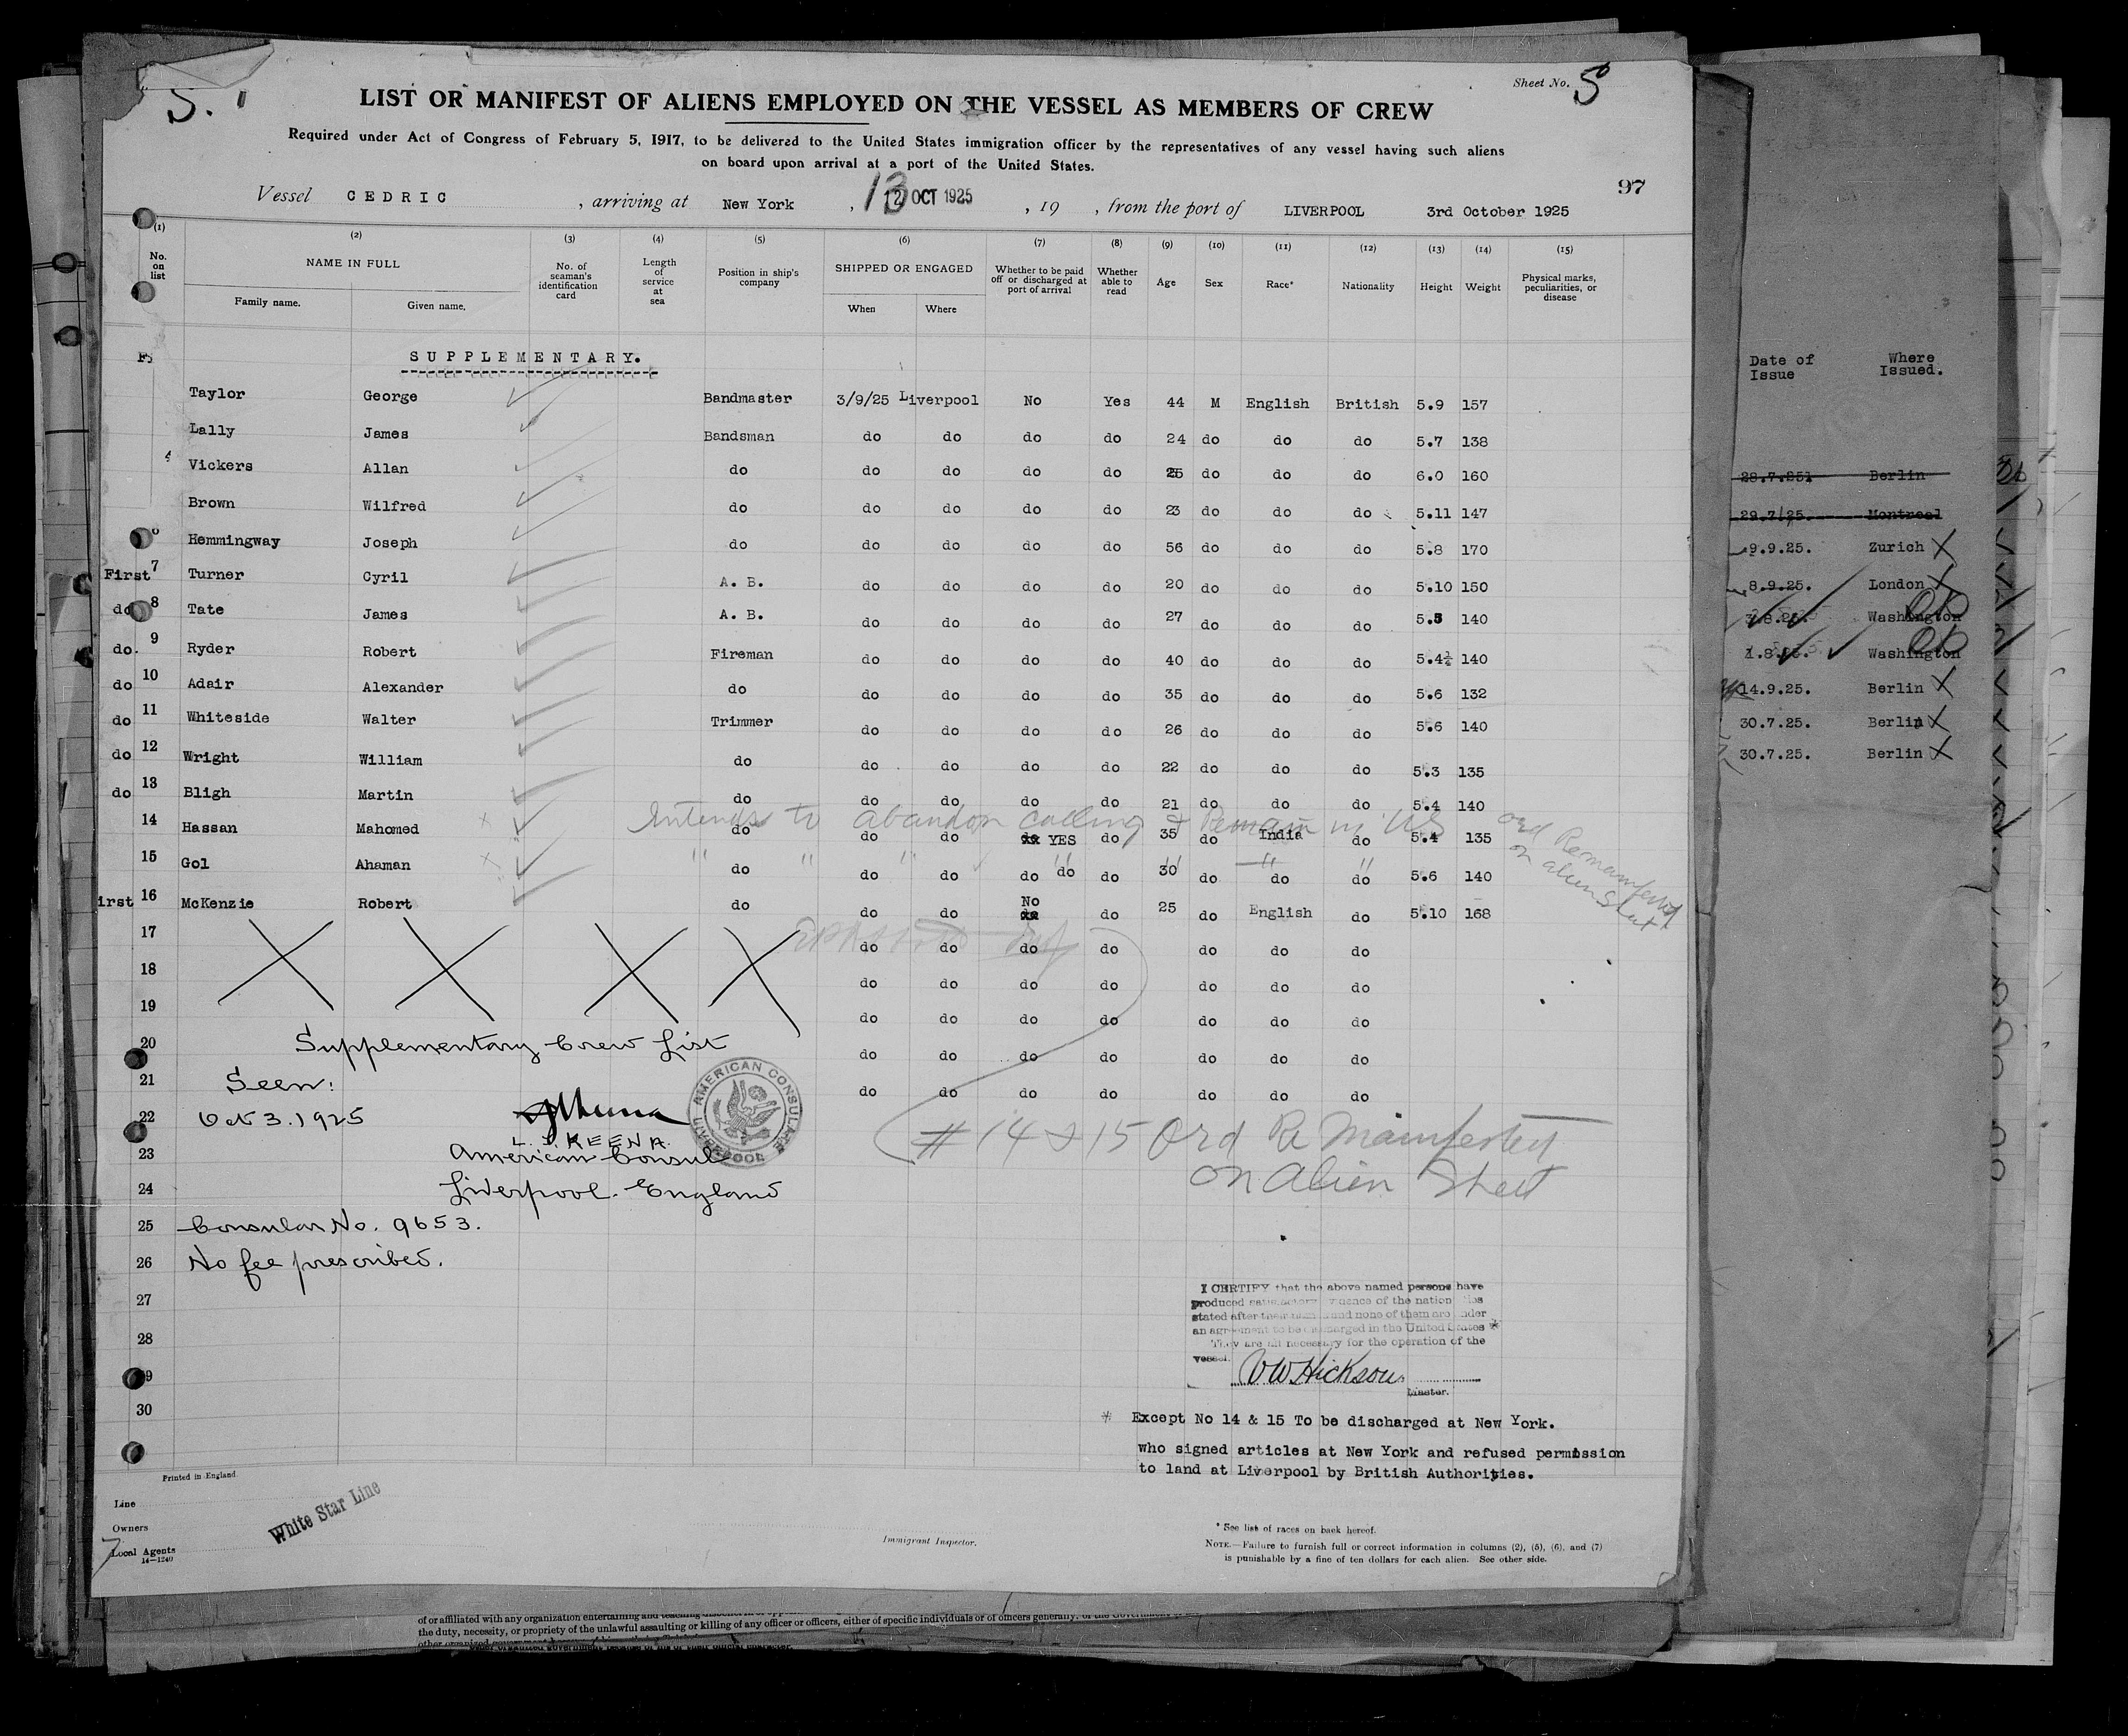 Sheet No. 5
5.
LIST OR MANIFEST OF ALIENS EMPLOYED ON THE VESSEL AS MEMBERS OF CREW
Required under Act of Congress of February 5, 1917, to be delivered to the United States immigration officer by the representatives of any vessel having such aliens
on board upon arrival at a port of the United States.
97
Vessel CEDRIC , arriving at New York , 13 OCT 1925 , 19 , from the port of LIVERPOOL 3rd October 1925
(1) (2) (3) (4) (5) (6) (7) (8) (9) (10) (11) (12) (13) (14) (15)
No. on list NAME IN FULL Family name. Given name. No. of seaman's identification card Length of service at sea Position in ship's company SHIPPED OR ENGAGED When Where Whether to be paid off or discharged at port of arrival Whether able to read Age Sex Race* Nationality Height Weight Physical marks, peculiarities, or disease
SUPPLEMENTARY.
Taylor George Bandmaster 3/9/25 Liverpool No Yes 44 M English British 5.9 157
Lally James Bandsman do do do do 24 do do do 5.7 138
Vickers Allan do do do do do 25 do do do 6.0 160
Brown Wilfred do do do do do 23 do do do 5.11 147
Hemmingway Joseph do do do do do 56 do do do 5.8 170
First 7 Turner Cyril A. B. do do do do 20 do do do 5.10 150
do 8 Tate James A. B. do do do do 27 do do do 5.5 140
do. 9 Ryder Robert Fireman do do do do 40 do do do 5.4½ 140
do 10 Adair Alexander do do do do do 35 do do do 5.6 132
do 11 Whiteside Walter Trimmer do do do do 26 do do do 5.6 140
do 12 Wright William do do do do do 22 do do do 5.3 135
do 13 Bligh Martin do do do do do 21 do do do 5.4 140
Intends to abandon calling & Remain in US
14 Hassan Mahomed do do do do YES do 35 do India do 5.4 135
15 Gol Ahaman do do do do do do 30 do do do 5.6 140
ord Remanifested
on alien Sheet
irst 16 McKenzie Robert do do do No do 25 do English do 5.10 168
17 do do do do do do do
18 do do do do do do do
19 do do do do do do do
20 do do do do do do do
21 do do do do do do do
Supplementary Crew List
Seen:
22 Oct 3. 1925
L. J. KEENA.
23 American Consul
AMERICAN CONSULATE LIVERPOOL
# 14 & 15 Ord Re Manifested
on Alien Sheet
24 Liverpool. England
25 Consular No. 9653.
26 No fee prescribed.
27
28
29
30
I CERTIFY that the above named persons have
produced satisfactory evidence of the nationalities
stated after their names and none of them are under
an agreement to be discharged in the United States *
They are all necessary for the operation of the
vessel.
VW Hickson
Master.
* Except No 14 & 15 To be discharged at New York.
who signed articles at New York and refused permission
to land at Liverpool by British Authorities.
Printed in England.
Line
White Star Line
Owners
Local Agents
14—1240
Immigrant Inspector.
* See list of races on back hereof.
NOTE.—Failure to furnish full or correct information in columns (2), (5), (6), and (7)
is punishable by a fine of ten dollars for each alien. See other side.
Date of Issue Where Issued.
28.7.25 Berlin
29.7.25. Montreal
9.9.25. Zurich X
8.9.25. London X
Washington
Washington
14.9.25. Berlin X
30.7.25. Berlin X
30.7.25. Berlin X
the duty, necessity, or propriety of the unlawful assaulting or killing of any officer or officers, either of specific individuals or of officers generally, of the Government